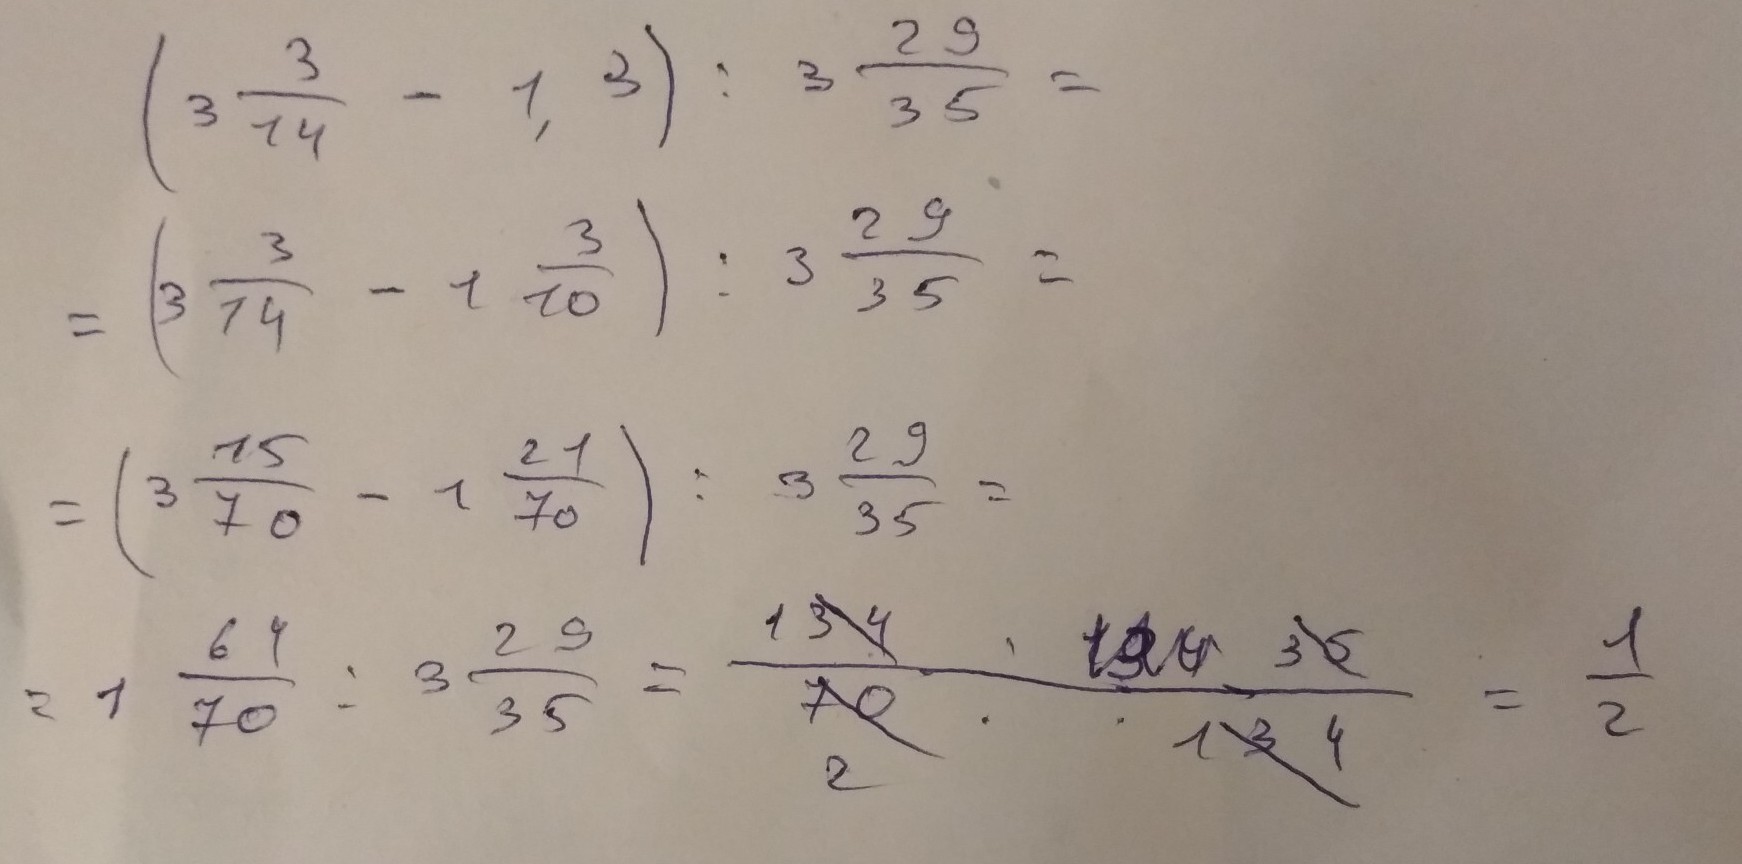 (3 3/14 - 1,3) : 3 29/35 =
= (3 3/14 - 1 3/10) : 3 29/35 =
= (3 15/70 - 1 21/70) : 3 29/35 =
= 1 64/70 : 3 29/35 = 134 · 35 / 70 2 · 134 = 1/2